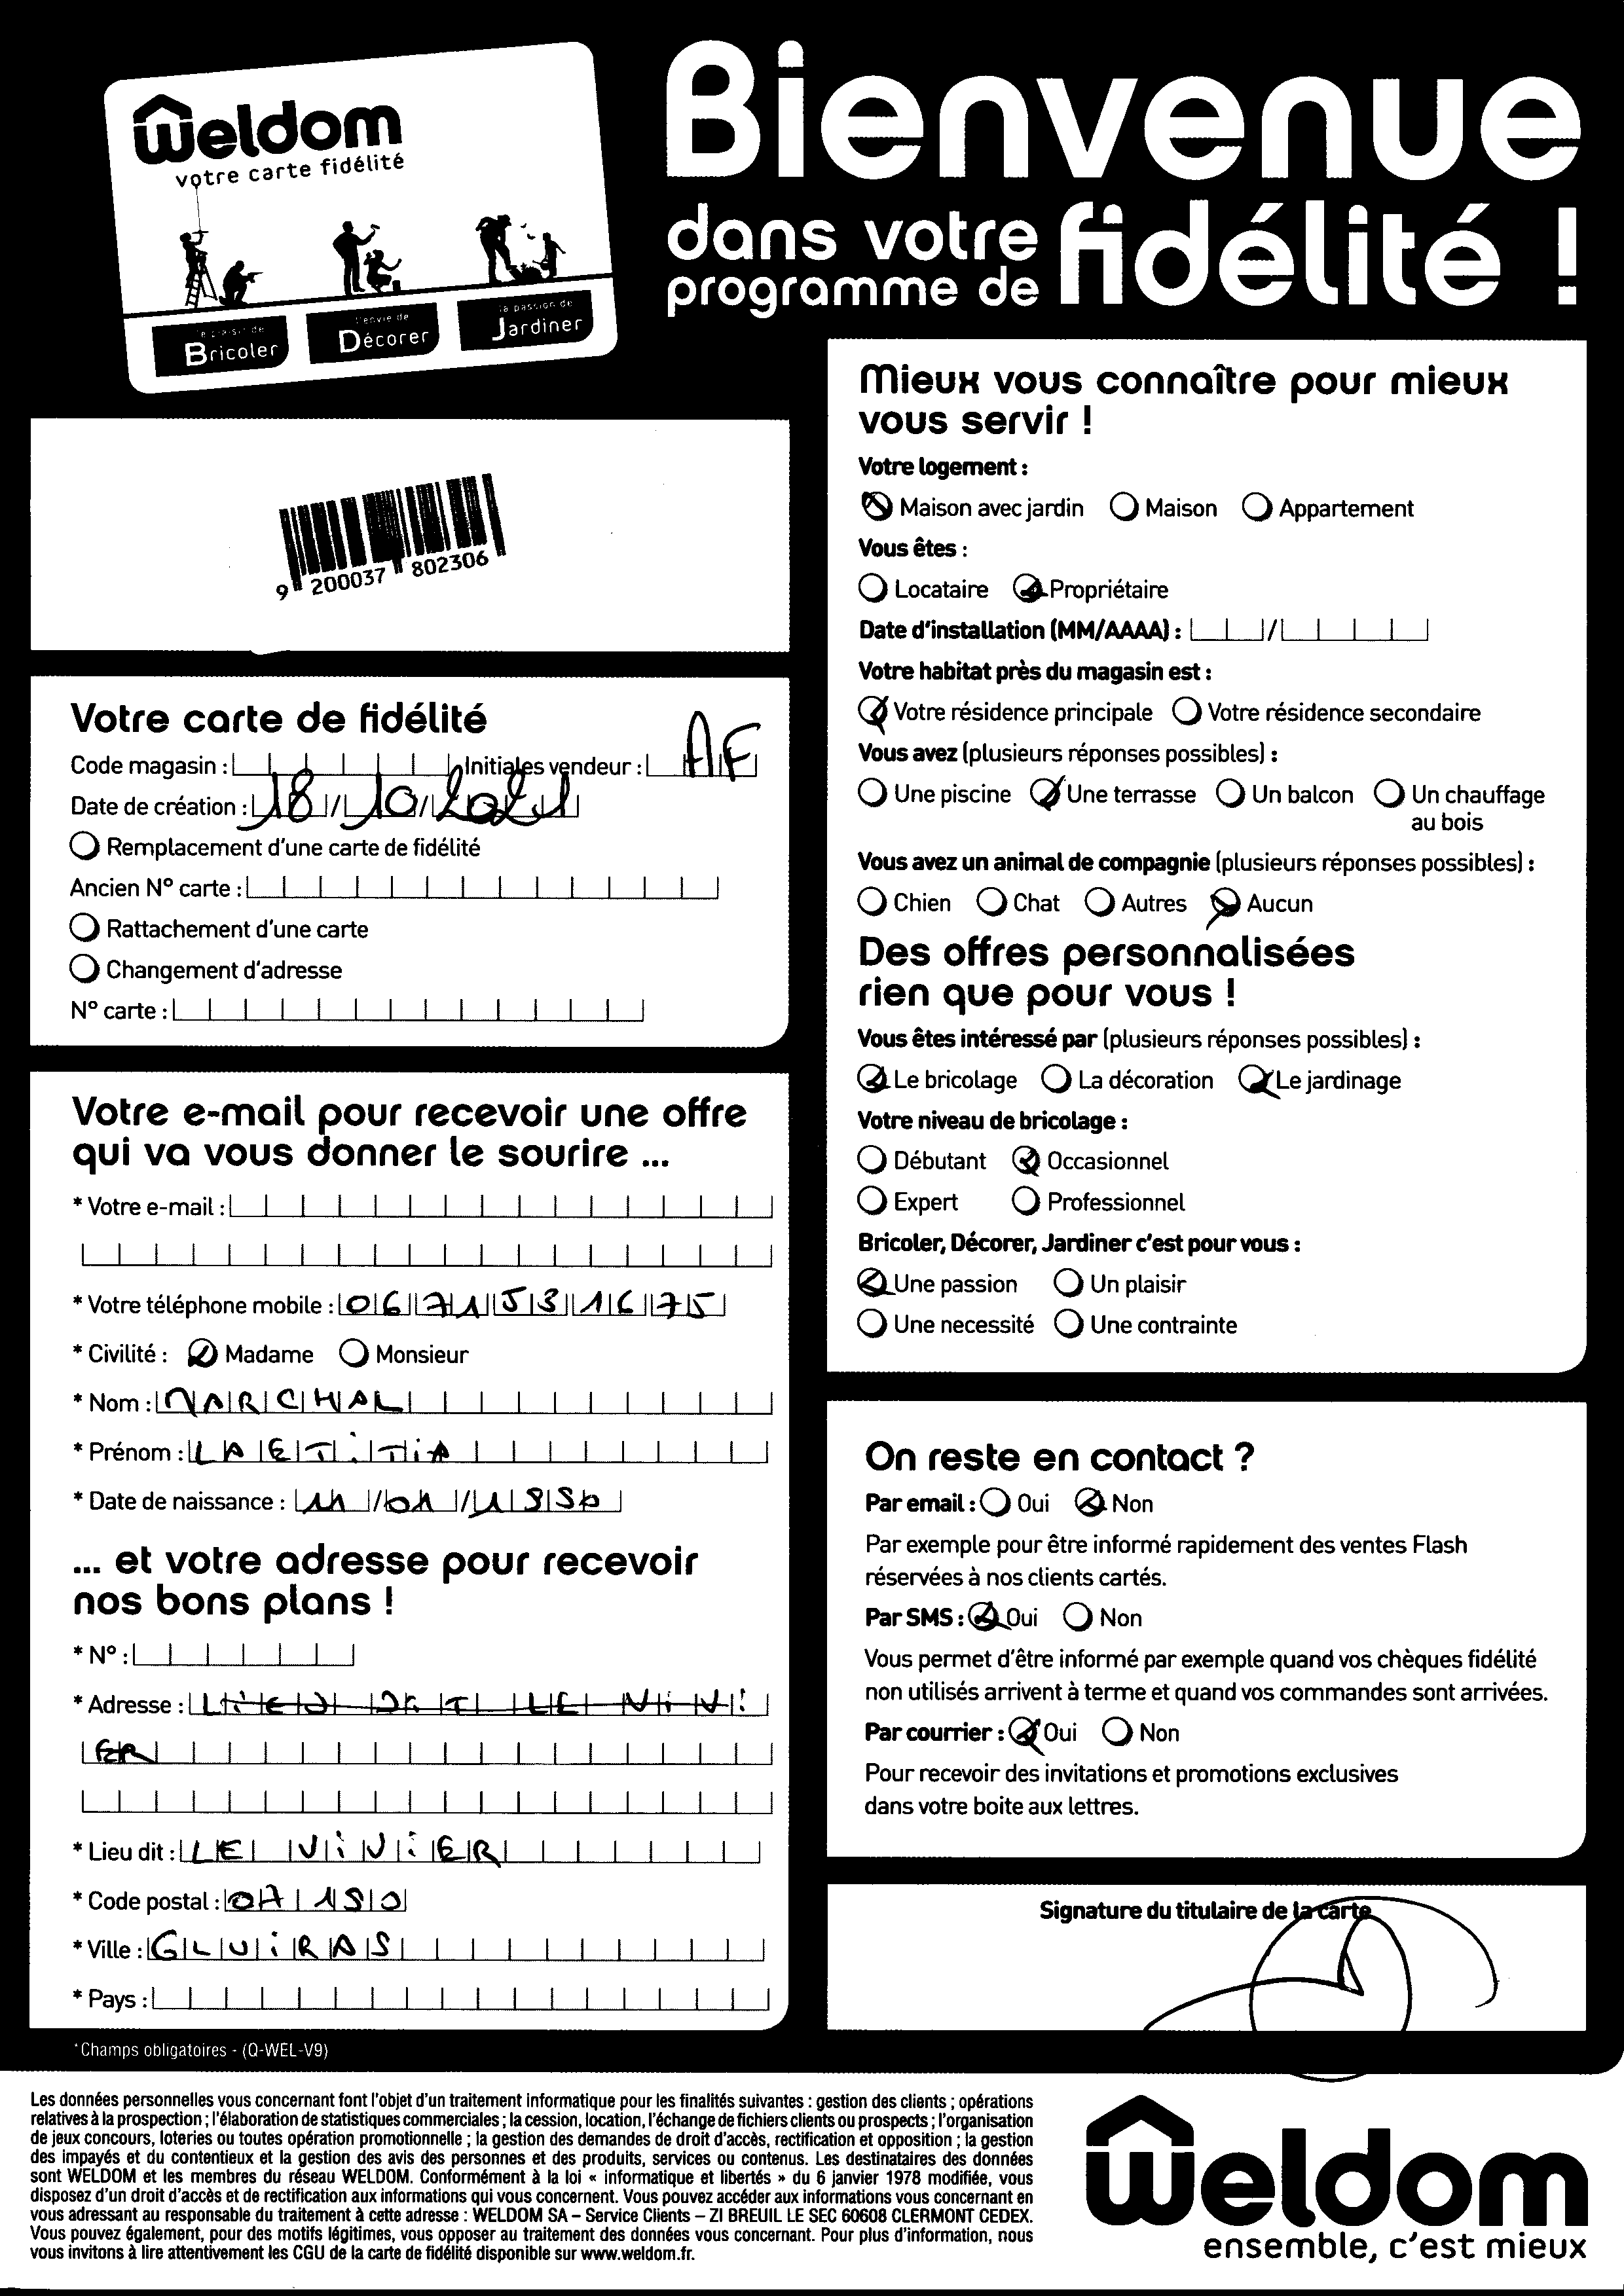 Weldom
votre carte fidélité
le plaisir de
Bricoler
l'envie de
Décorer
la passion de
Jardiner
Bienvenue
dans votre
programme de fidélité !
9 200037 802306
Votre carte de fidélité
Code magasin : Initiales vendeur : AF
Date de création : 18/10/2021
Remplacement d'une carte de fidélité
Ancien N° carte :
Rattachement d'une carte
Changement d'adresse
N° carte :
Votre e-mail pour recevoir une offre
qui va vous donner le sourire ...
* Votre e-mail :
* Votre téléphone mobile : 06 71 53 16 75
* Civilité : Madame Monsieur
* Nom : MARCHAL
* Prénom : LAETiTiA
* Date de naissance : 11/01/
... et votre adresse pour recevoir
nos bons plans !
* N° :
* Adresse :
* Lieu dit : LE ViViER
* Code postal : 07190
* Ville : GLUiRAS
* Pays :
*Champs obligatoires - (Q-WEL-V9)
Mieux vous connaître pour mieux
vous servir !
Votre logement :
Maison avec jardin Maison Appartement
Vous êtes :
Locataire Propriétaire
Date d'installation (MM/AAAA) : /
Votre habitat près du magasin est :
Votre résidence principale Votre résidence secondaire
Vous avez (plusieurs réponses possibles) :
Une piscine Une terrasse Un balcon Un chauffage
au bois
Vous avez un animal de compagnie (plusieurs réponses possibles) :
Chien Chat Autres Aucun
Des offres personnalisées
rien que pour vous !
Vous êtes intéressé par (plusieurs réponses possibles) :
Le bricolage La décoration Le jardinage
Votre niveau de bricolage :
Débutant Occasionnel
Expert Professionnel
Bricoler, Décorer, Jardiner c'est pour vous :
Une passion Un plaisir
Une necessité Une contrainte
On reste en contact ?
Par email : Oui Non
Par exemple pour être informé rapidement des ventes Flash
réservées à nos clients cartés.
Par SMS : Oui Non
Vous permet d'être informé par exemple quand vos chèques fidélité
non utilisés arrivent à terme et quand vos commandes sont arrivées.
Par courrier : Oui Non
Pour recevoir des invitations et promotions exclusives
dans votre boite aux lettres.
Signature du titulaire de la carte
Les données personnelles vous concernant font l'objet d'un traitement informatique pour les finalités suivantes : gestion des clients ; opérations
relatives à la prospection ; l'élaboration de statistiques commerciales ; la cession, location, l'échange de fichiers clients ou prospects ; l'organisation
de jeux concours, loteries ou toutes opération promotionnelle ; la gestion des demandes de droit d'accès, rectification et opposition ; la gestion
des impayés et du contentieux et la gestion des avis des personnes et des produits, services ou contenus. Les destinataires des données
sont WELDOM et les membres du réseau WELDOM. Conformément à la loi « informatique et libertés » du 6 janvier 1978 modifiée, vous
disposez d'un droit d'accès et de rectification aux informations qui vous concernent. Vous pouvez accéder aux informations vous concernant en
vous adressant au responsable du traitement à cette adresse : WELDOM SA – Service Clients – ZI BREUIL LE SEC 60608 CLERMONT CEDEX.
Vous pouvez également, pour des motifs légitimes, vous opposer au traitement des données vous concernant. Pour plus d'information, nous
vous invitons à lire attentivement les CGU de la carte de fidélité disponible sur www.weldom.fr.
Weldom
ensemble, c'est mieux